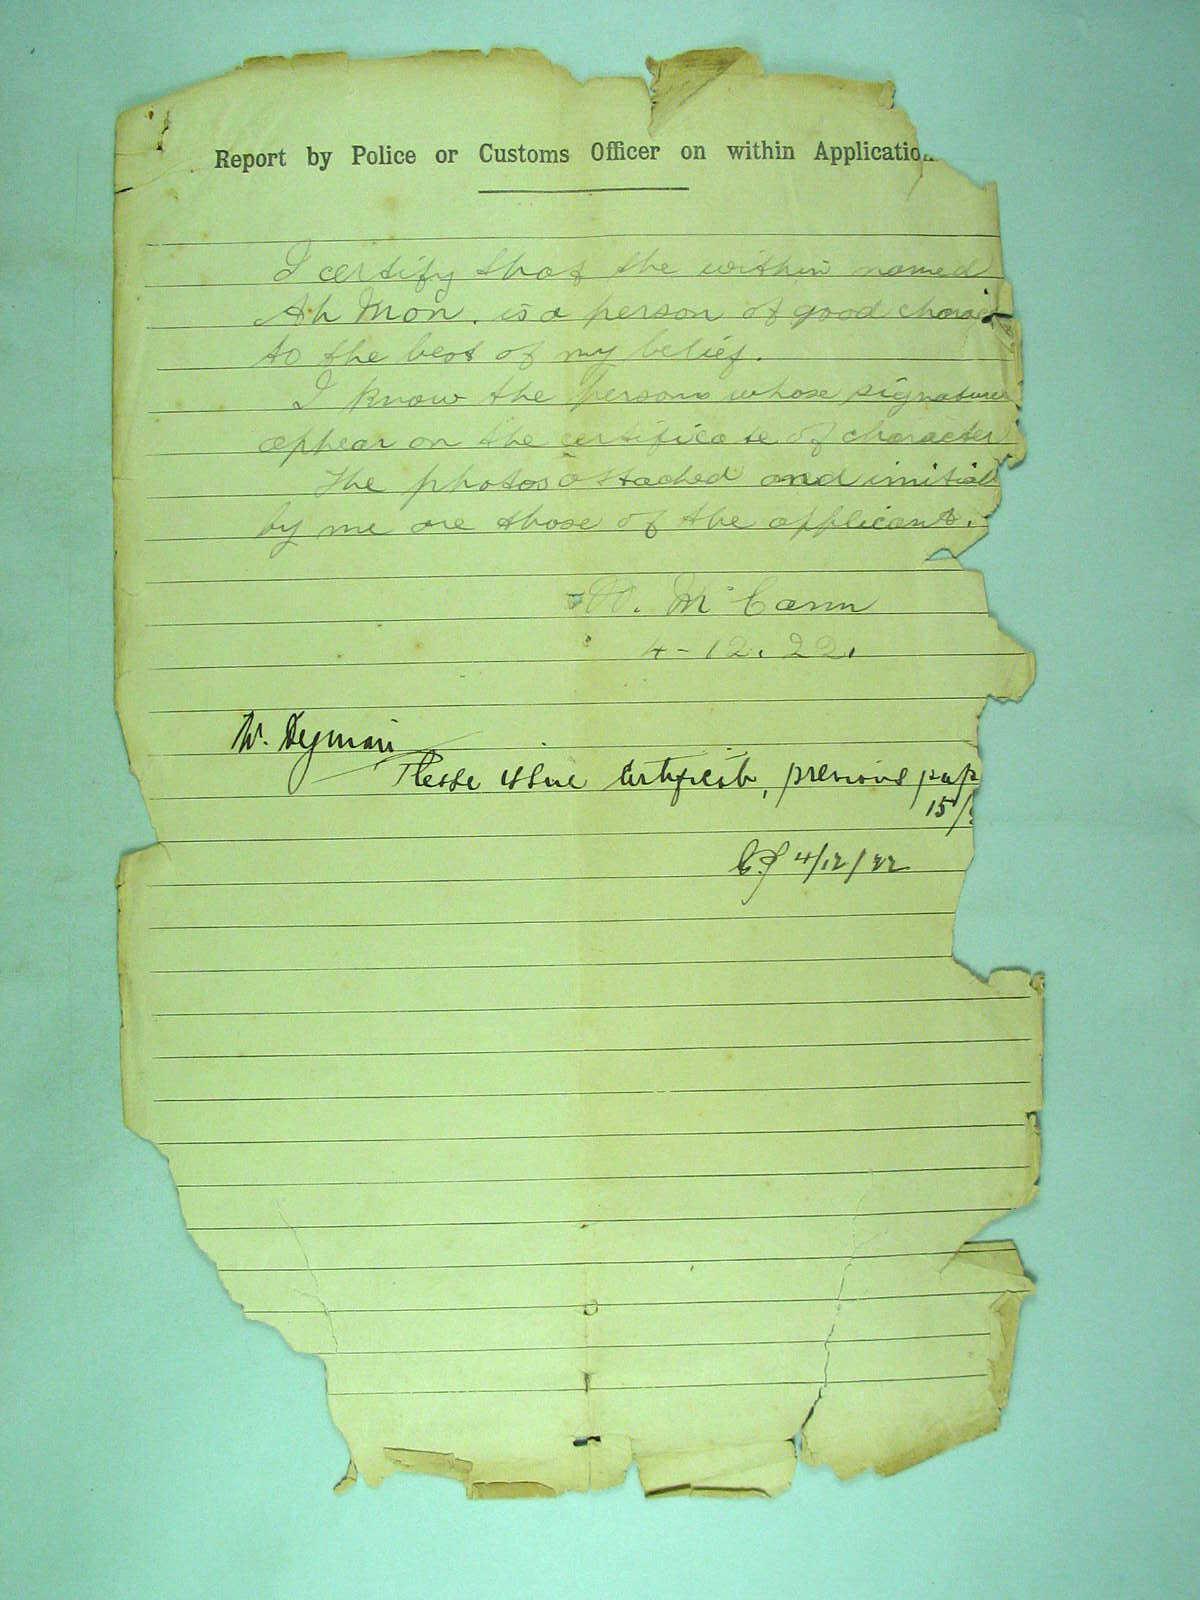 Report by Police or Customs Officer on within Application
I certify that the within named
Ah Mon. is a person of good charac
to the best of my belief.
I know the persons whose signatures
appear on the certificate of character
The photos attached and initial
by me are those of the applicant.
W. McCann
4-12.22.
Please issue certificate, previous pap
15/
4/12/22